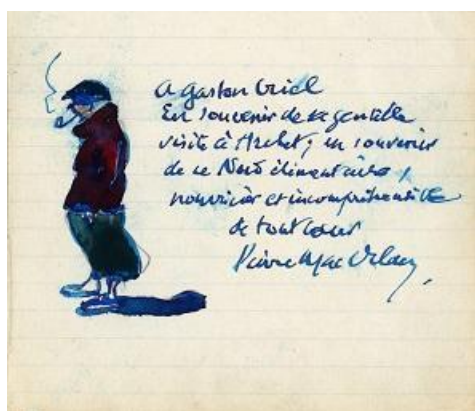 A Gaston Criel
En souvenir de sa gentille
visite à Archet, en souvenir
de ce Nord élimentaire,
nourricier et incompréhensible
de tout cœur
Pierre Mac Orlan